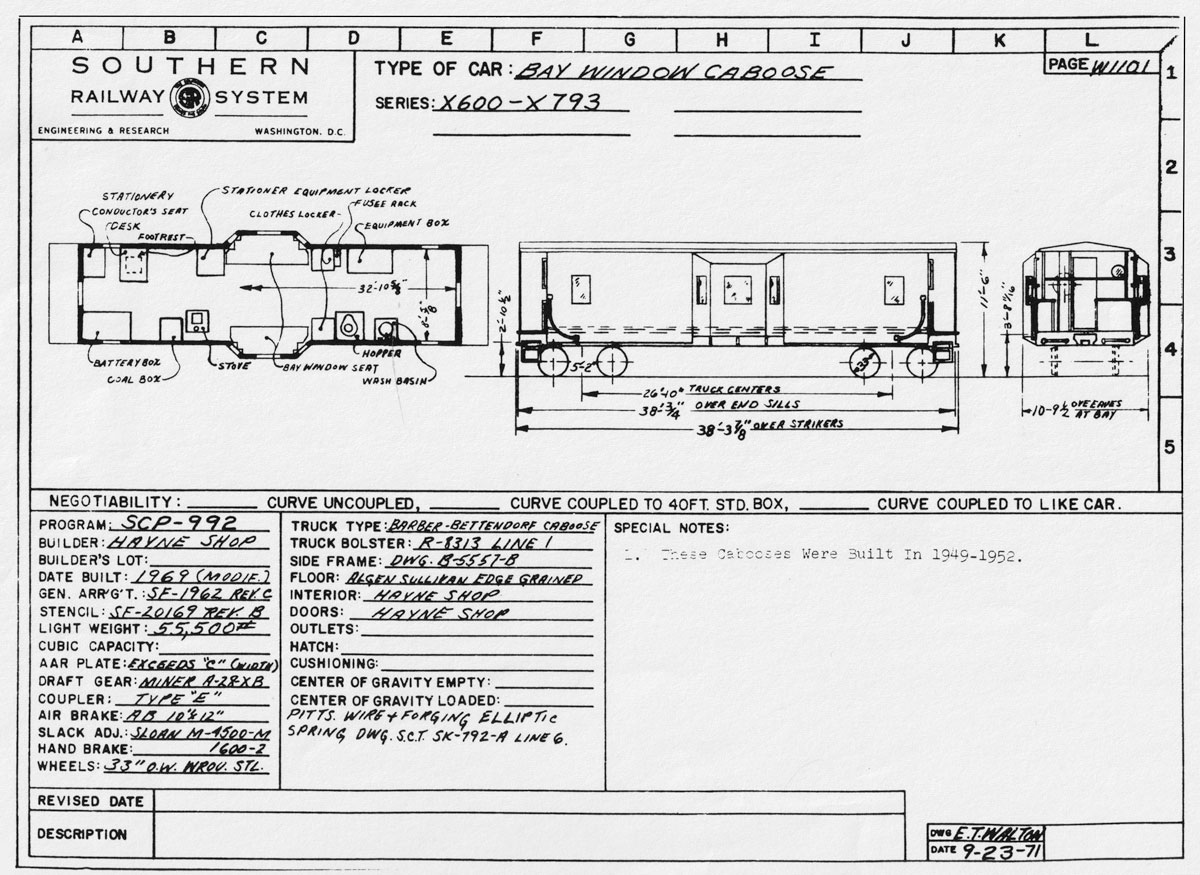 A B C D E F G H I J K L
SOUTHERN
RAILWAY SYSTEM
ENGINEERING & RESEARCH WASHINGTON, D.C.
TYPE OF CAR: BAY WINDOW CABOOSE
SERIES: X600-X793
PAGE W1101
1
2
3
4
5
STATIONERY
CONDUCTOR'S SEAT
DESK
FOOTREST
STATIONER EQUIPMENT LOCKER
FUSEE RACK
CLOTHES LOCKER
EQUIPMENT BOX
32'-10 5/8"
BATTERY BOX
COAL BOX
STOVE
BAY WINDOW SEAT
HOPPER
WASH BASIN
2'-10 1/2"
5'-2"
33"
11'-6"
26'-10" TRUCK CENTERS
38'-3/4" OVER END SILLS
38'-3 7/8" OVER STRIKERS
10-9 1/2 OVER EAVES
AT BAY
NEGOTIABILITY: CURVE UNCOUPLED, CURVE COUPLED TO 40FT. STD. BOX, CURVE COUPLED TO LIKE CAR.
PROGRAM: SCP-992
BUILDER: HAYNE SHOP
BUILDER'S LOT:
DATE BUILT: 1969 (MODIF.)
GEN. ARR'G'T.: SF-1962 REV. C
STENCIL: SF-20169 REV. B
LIGHT WEIGHT: 55,500#
CUBIC CAPACITY:
AAR PLATE: EXCEEDS "C" (WIDTH)
DRAFT GEAR: MINER A-28-XB
COUPLER: TYPE "E"
AIR BRAKE: AB 10"x12"
SLACK ADJ.: SLOAN M-4500-M
HAND BRAKE: 1600-2
WHEELS: 33" O.W. WROU. STL.
TRUCK TYPE: BARBER-BETTENDORF CABOOSE
TRUCK BOLSTER: R-8313 LINE 1
SIDE FRAME: DWG. B-5557-B
FLOOR: ALGEN SULLIVAN EDGE GRAINED
INTERIOR: HAYNE SHOP
DOORS: HAYNE SHOP
OUTLETS:
HATCH:
CUSHIONING:
CENTER OF GRAVITY EMPTY:
CENTER OF GRAVITY LOADED:
PITTS. WIRE & FORGING ELLIPTIC
SPRING DWG. S.C.T. SK-792-A LINE 6.
SPECIAL NOTES:
1. These Cabooses Were Built In 1949-1952.
REVISED DATE
DESCRIPTION
DWG E.T. WALTON
DATE 9-23-71